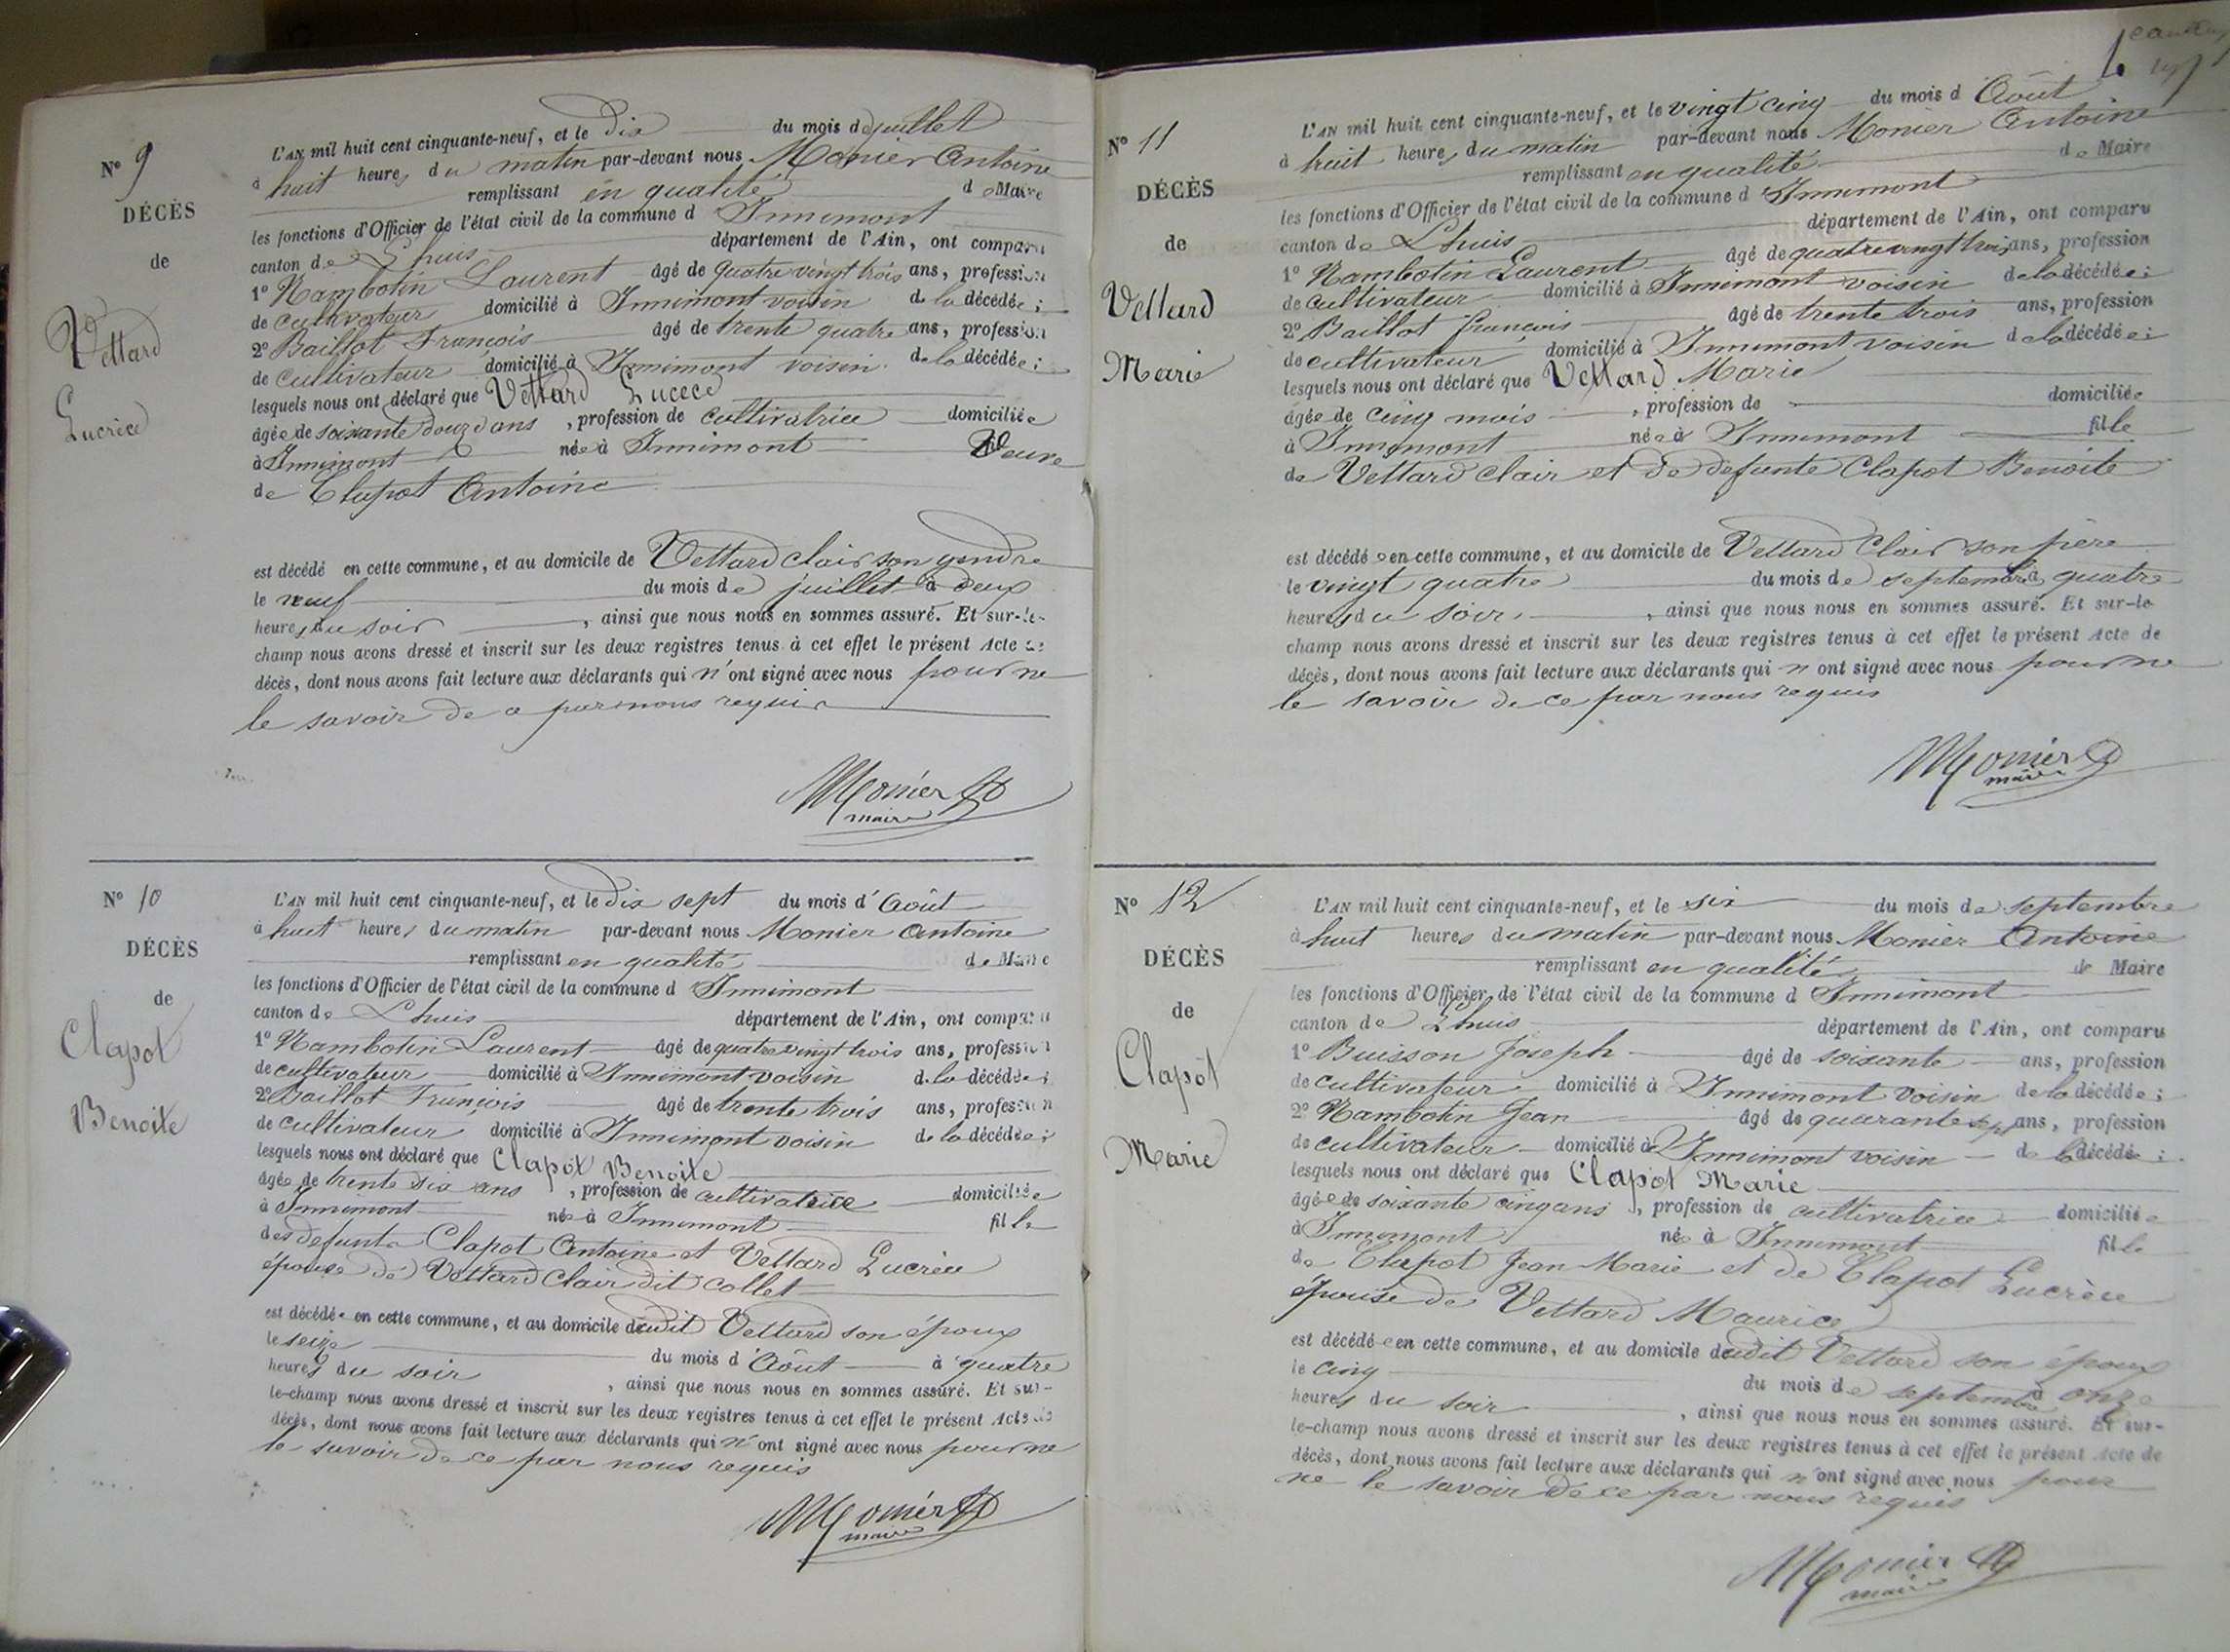 N° 9
DÉCÈS
de
Vettard
Lucrèce
L'AN mil huit cent cinquante-neuf, et le dix du mois de juillet
à huit heures du matin par-devant nous Monier Antoine
remplissant en qualité de Maire
les fonctions d'Officier de l'état civil de la commune d'Innimont
canton de Lhuis département de l'Ain, ont comparu
1° Nambotin Laurent âgé de quatre vingt trois ans, profession
de cultivateur domicilié à Innimont voisin de la décédée ;
2° Baillot François âgé de trente quatre ans, profession
de cultivateur domicilié à Innimont voisin de la décédée ;
lesquels nous ont déclaré que Vettard Lucece
âgée de soixante douze ans, profession de cultivatrice domiciliée
à Innimont née à Innimont Veuve
de Clapot Antoine
est décédé en cette commune, et au domicile de Vettard clair son gendre
le neuf du mois de juillet à deux
heures du soir, ainsi que nous nous en sommes assuré. Et sur-le-
champ nous avons dressé et inscrit sur les deux registres tenus à cet effet le présent Acte de
décès, dont nous avons fait lecture aux déclarants qui n'ont signé avec nous pour ne
le savoir de ce par nous requis
Monier
maire
N° 10
DÉCÈS
de
Clapot
Benoite
L'AN mil huit cent cinquante-neuf, et le dix sept du mois d'Août
à huit heures du matin par-devant nous Monier Antoine
remplissant en qualité de Maire
les fonctions d'Officier de l'état civil de la commune d'Innimont
canton de Lhuis département de l'Ain, ont comparu
1° Nambotin Laurent âgé de quatre vingt trois ans, profession
de cultivateur domicilié à Innimont voisin de la décédée ;
2° Baillot François âgé de trente trois ans, profession
de cultivateur domicilié à Innimont voisin de la décédée ;
lesquels nous ont déclaré que Clapot Benoite
âgée de trente six ans, profession de cultivatrice domiciliée
à Innimont née à Innimont fille
des defunts Clapot Antoine et Vettard Lucrèce
épouse de Vettard Clair dit Collet
est décédée en cette commune, et au domicile dudit Vettard son époux
le seize du mois d'Août à quatre
heures du soir, ainsi que nous nous en sommes assuré. Et sur-
le-champ nous avons dressé et inscrit sur les deux registres tenus à cet effet le présent Acte de
décès, dont nous avons fait lecture aux déclarants qui n'ont signé avec nous pour ne
le savoir de ce par nous requis
Monier
maire
N° 11
DÉCÈS
de
Vettard
Marie
L'AN mil huit cent cinquante-neuf, et le vingt cinq du mois d'Août
à huit heures du matin par-devant nous Monier Antoine
remplissant en qualité de Maire
les fonctions d'Officier de l'état civil de la commune d'Innimont
canton de Lhuis département de l'Ain, ont comparu
1° Nambotin Laurent âgé de quatre vingt trois ans, profession
de cultivateur domicilié à Innimont voisin de la décédée ;
2° Baillot françois âgé de trente trois ans, profession
de cultivateur domicilié à Innimont voisin de la décédée ;
lesquels nous ont déclaré que Vettard Marie
âgée de cinq mois, profession de domiciliée
à Innimont née à Innimont fille
de Vettard Clair et de defunte Clapot Benoite
est décédée en cette commune, et au domicile de Vettard Clair son père
le vingt quatre du mois de septembre à quatre
heures du soir, ainsi que nous nous en sommes assuré. Et sur-le-
champ nous avons dressé et inscrit sur les deux registres tenus à cet effet le présent Acte de
décès, dont nous avons fait lecture aux déclarants qui n'ont signé avec nous pour ne
le savoir de ce par nous requis
Monier
maire
N° 12
DÉCÈS
de
Clapot
Marie
L'AN mil huit cent cinquante-neuf, et le six du mois de septembre
à huit heures du matin par-devant nous Monier Antoine
remplissant en qualité de Maire
les fonctions d'Officier de l'état civil de la commune d'Innimont
canton de Lhuis département de l'Ain, ont comparu
1° Buisson Joseph âgé de soixante ans, profession
de cultivateur domicilié à Innimont voisin de la décédée ;
2° Nambotin Jean âgé de quarante sept ans, profession
de cultivateur domicilié à Innimont voisin de la décédée ;
lesquels nous ont déclaré que Clapot Marie
âgée de soixante cinq ans, profession de cultivatrice domiciliée
à Innimont née à Innimont fille
de Clapot Jean Marie et de Clapot Lucrèce
épouse de Vettard Maurice
est décédée en cette commune, et au domicile dudit Vettard son époux
le cinq du mois de septembre à onze
heures du soir, ainsi que nous nous en sommes assuré. Et sur-
le-champ nous avons dressé et inscrit sur les deux registres tenus à cet effet le présent Acte de
décès, dont nous avons fait lecture aux déclarants qui n'ont signé avec nous pour
ne le savoir de ce par nous requis
Monier
maire